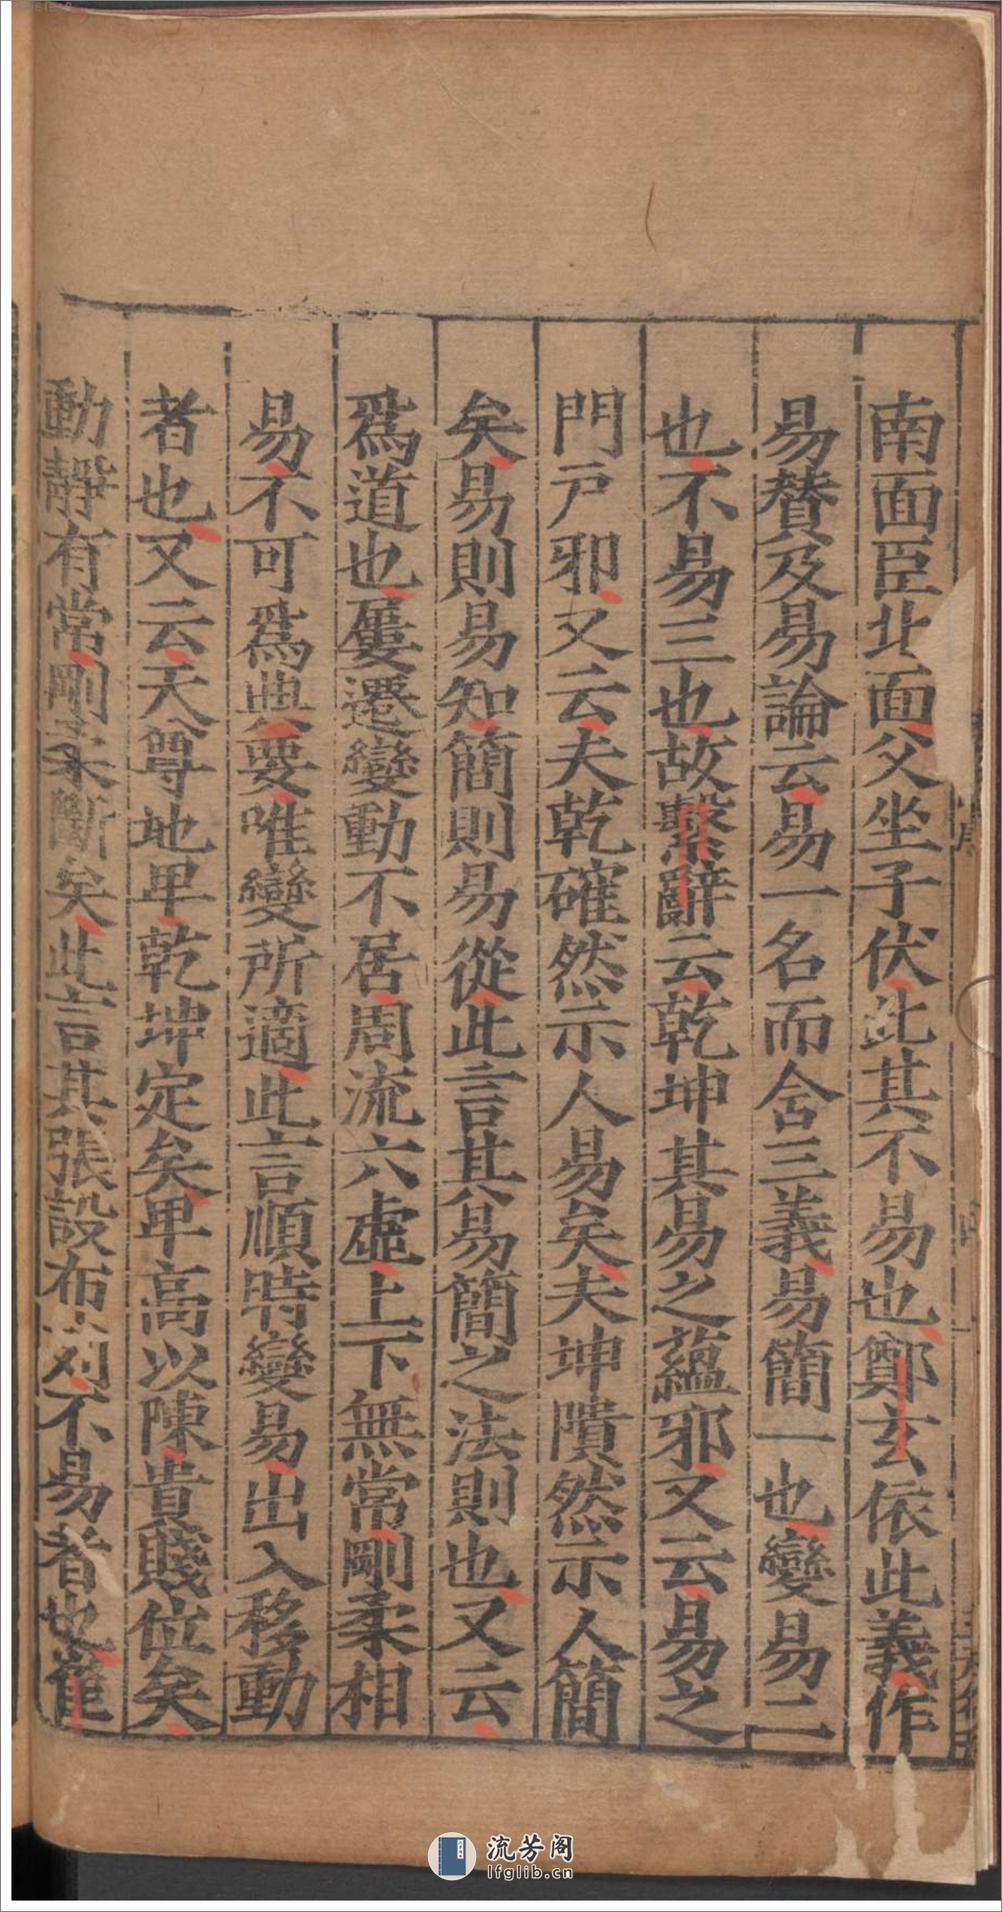 南面臣北面父坐子伏此其不易也鄭玄依此義作
易贊及易論云易一名而含三義易簡一也變易二
也不易三也故繫辭云乾坤其易之蘊邪又云易之
門戶邪又云夫乾確然示人易矣夫坤隤然示人簡
矣易則易知簡則易從此言其易簡之法則也又云
爲道也屢遷變動不居周流六虛上下無常剛柔相
易不可爲典要唯變所適此言順時變易出入移動
者也又云天尊地卑乾坤定矣卑高以陳貴賤位矣
動靜有常剛柔斷矣此言其張設布列不易者也崔
流芳阁
lfglib.cn